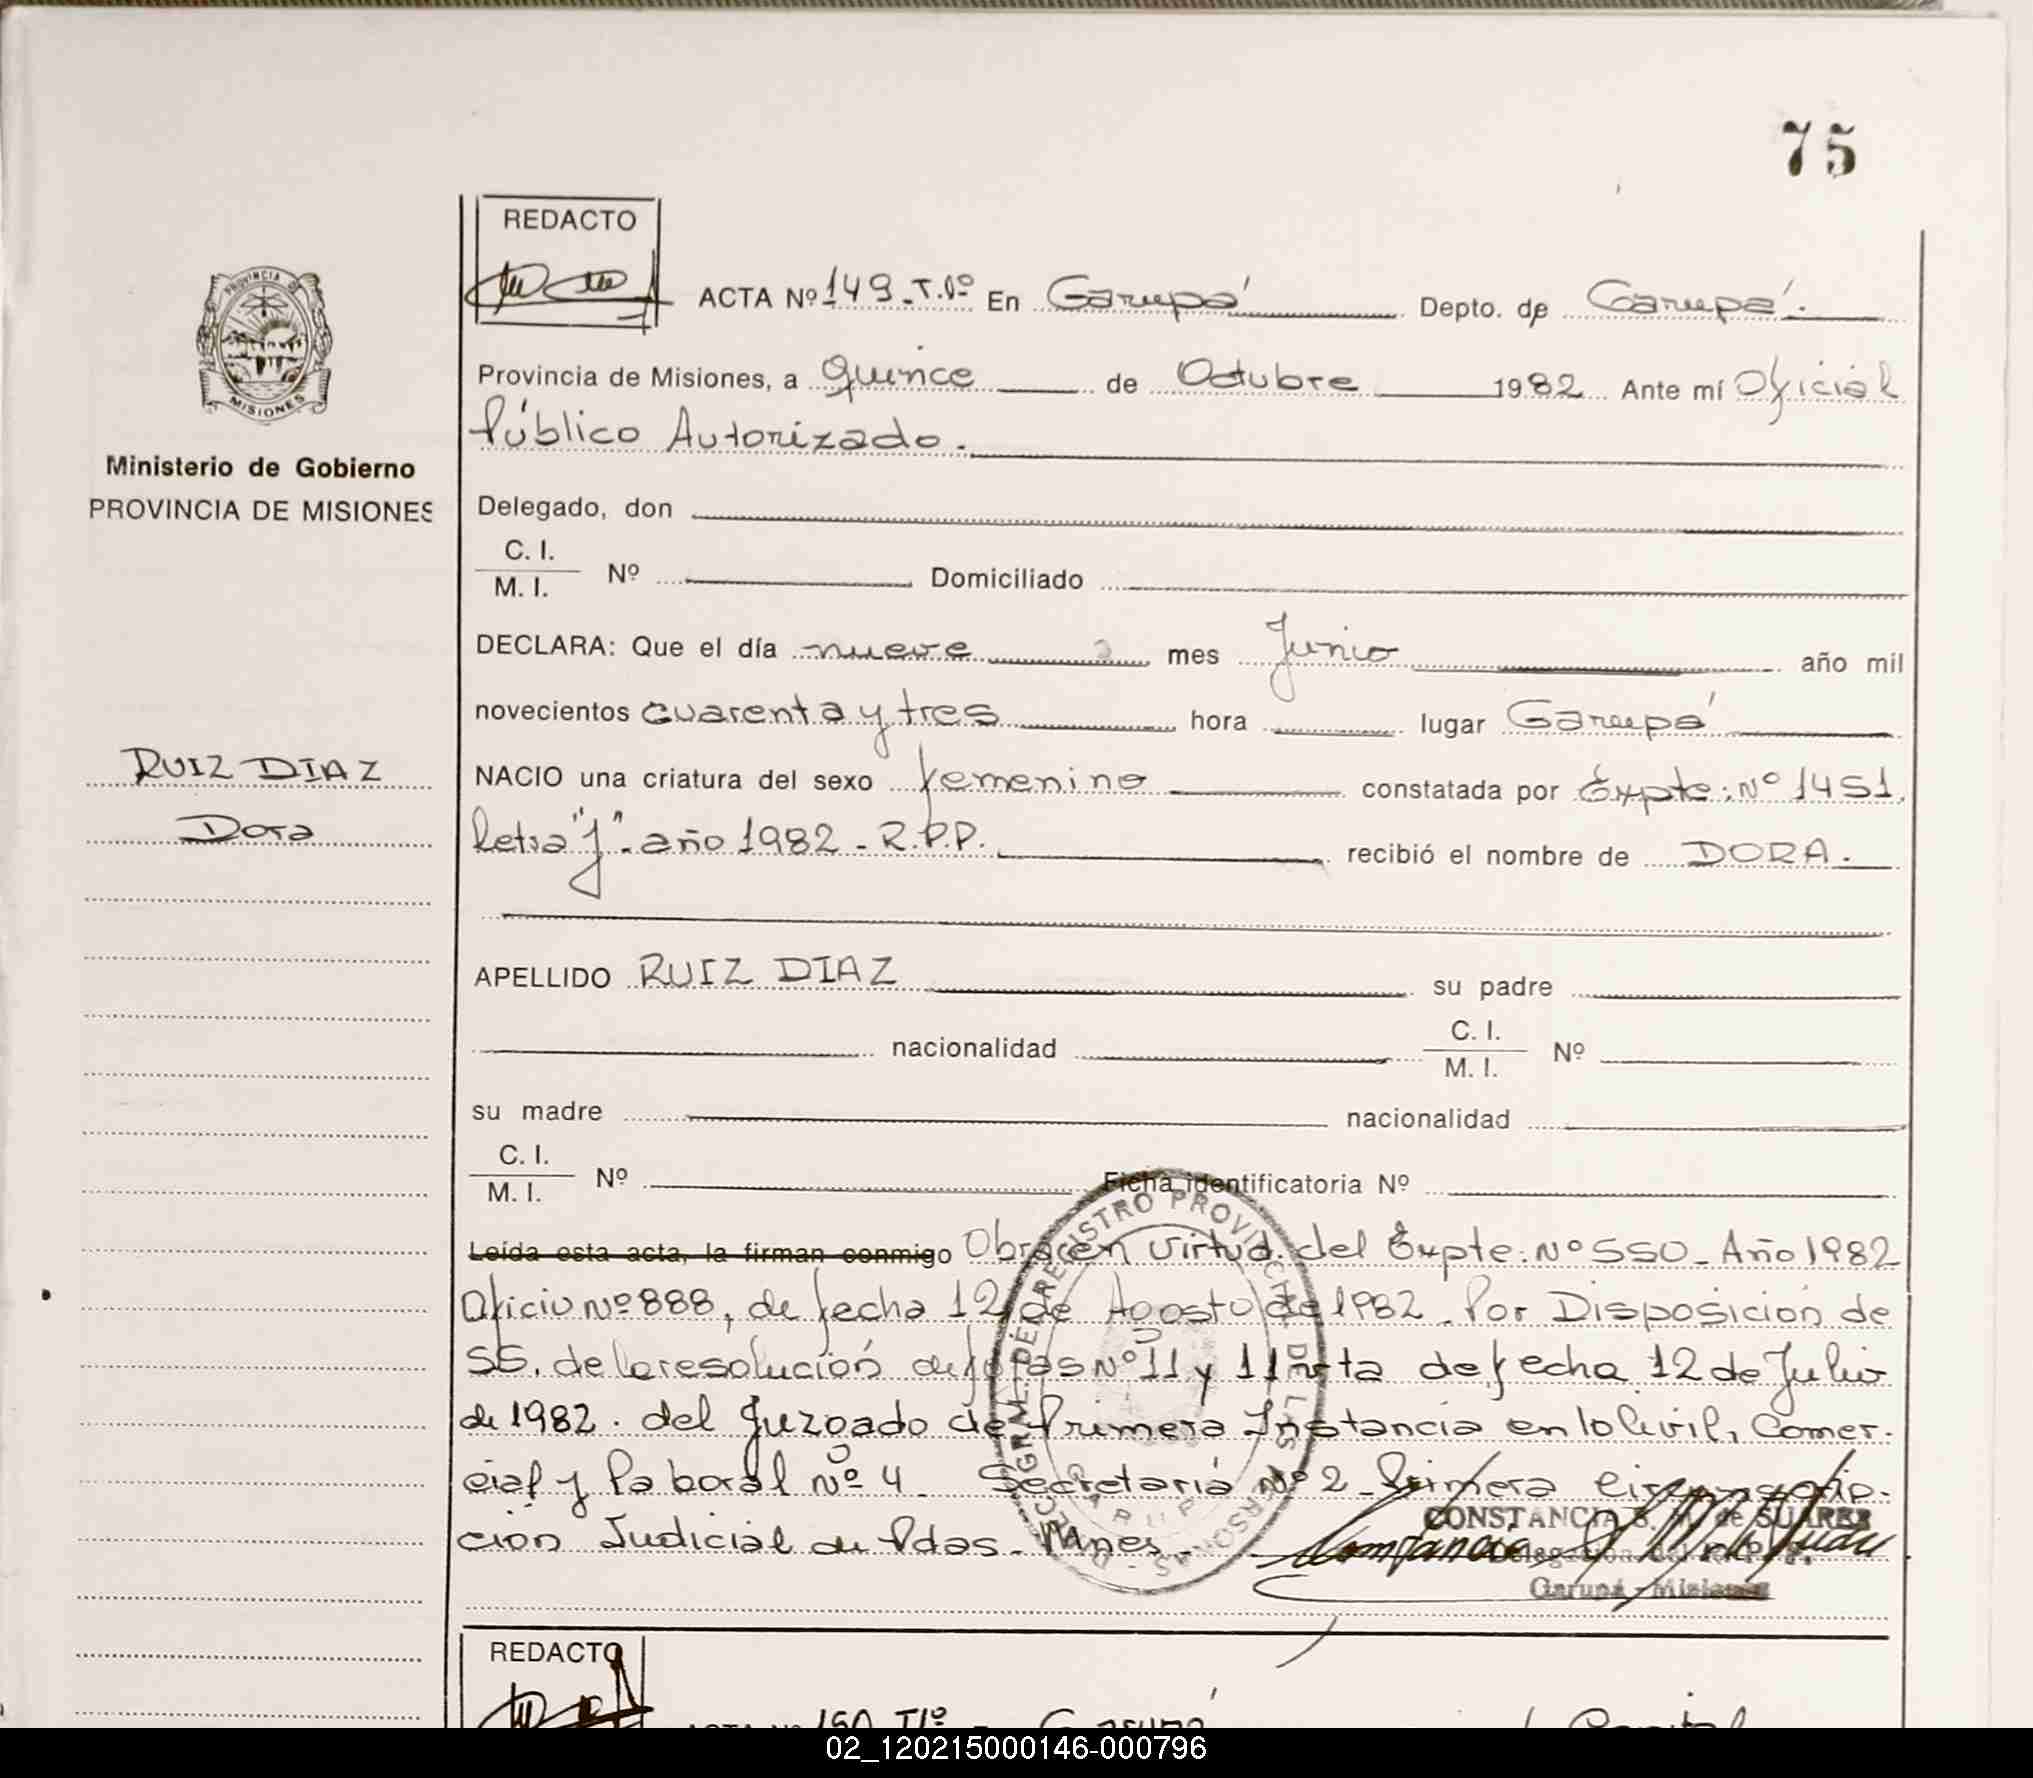 75
REDACTO
ACTA Nº 149-T.1º En Garupá Depto. de Garupá.
PROVINCIA DE
MISIONES
Provincia de Misiones, a quince de Octubre 1982 Ante mí Oficial
Público Autorizado.
Ministerio de Gobierno
PROVINCIA DE MISIONES
Delegado, don
C. I.
M. I. Nº Domiciliado
DECLARA: Que el día nueve mes Junio año mil
novecientos cuarenta y tres hora lugar Garupá
RUIZ DIAZ
Dora
NACIO una criatura del sexo femenino constatada por Expte: Nº 1451,
letra "J". año 1982 - R.P.P. recibió el nombre de DORA.
APELLIDO RUIZ DIAZ su padre
nacionalidad C. I.
M. I. Nº
su madre nacionalidad
C. I.
M. I. Nº Ficha identificatoria Nº
Leída esta acta, la firman conmigo Obra en virtud del Expte: Nº 550 - Año 1982
Oficio Nº 888, de fecha 12 de Agosto de 1982. Por Disposición de
SS. de la resolución de fojas Nº 11 y 11 vta de fecha 12 de Julio
de 1982. del Juzgado de Primera Instancia en lo Civil, Comer-
cial y Laboral Nº 4 Secretaria Nº 2 - Primera Circunscrip-
ción Judicial de Pdas - Mnes -
DIRECC. GRAL. DEL REGISTRO PROVINCIAL DE LAS PERSONAS
GARUPA
CONSTANCIA S. de SUAREZ
Garupá - Misiones
REDACTO
ACTA Nº 150 T1º Garupá Capital
02_120215000146-000796